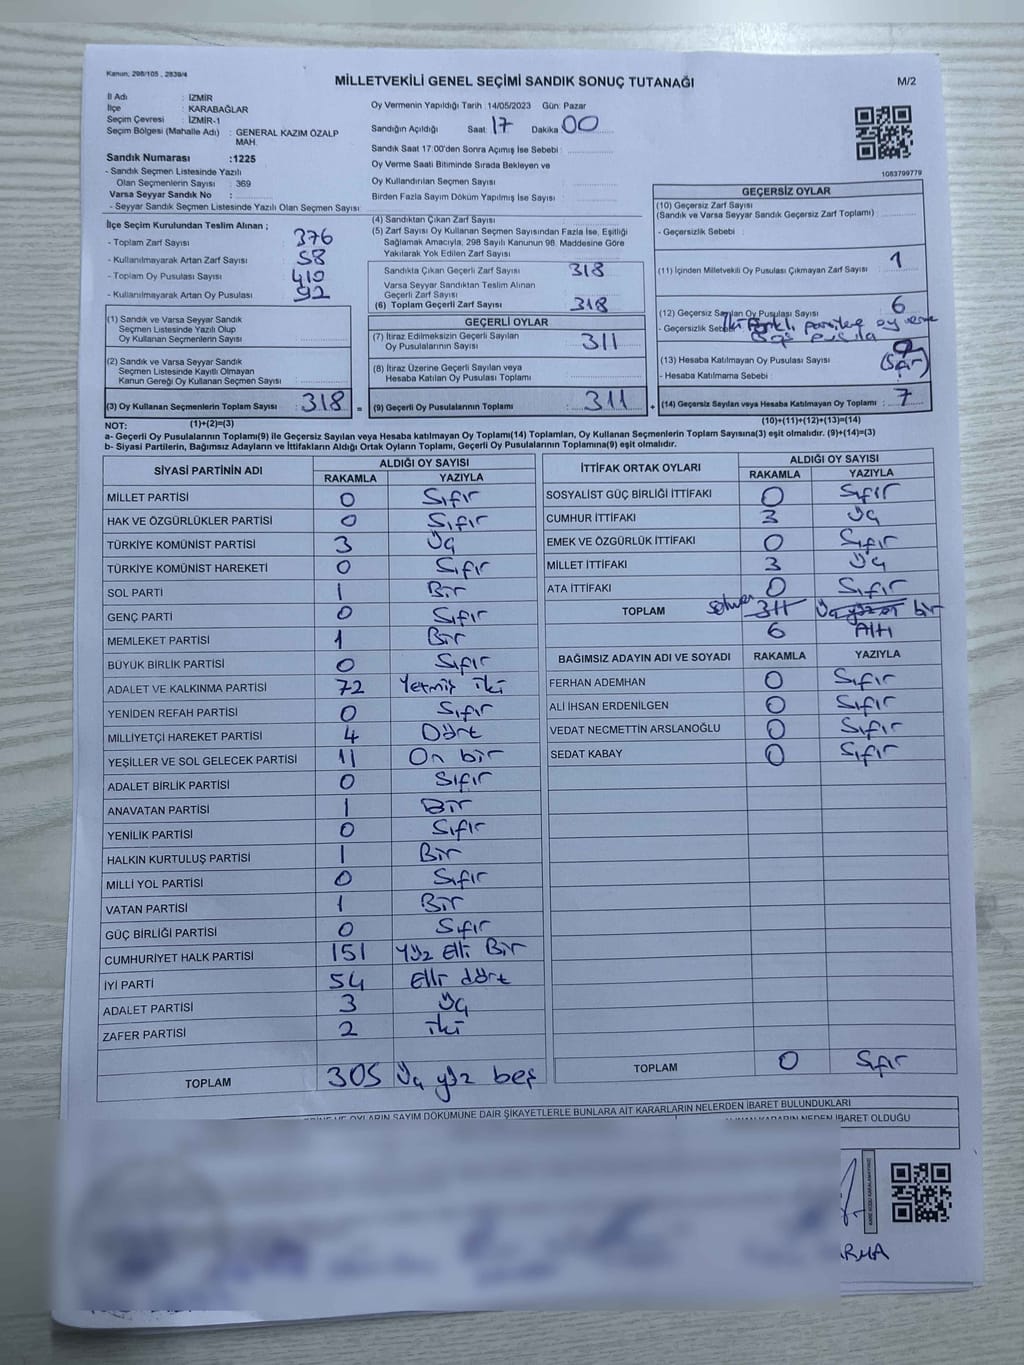 Kanun: 298/105 , 2839/4
MİLLETVEKİLİ GENEL SEÇİMİ SANDIK SONUÇ TUTANAĞI
M/2
İl Adı : İZMİR
İlçe : KARABAĞLAR
Seçim Çevresi : İZMİR-1
Seçim Bölgesi (Mahalle Adı) : GENERAL KAZIM ÖZALP MAH.
Sandık Numarası :1225
- Sandık Seçmen Listesinde Yazılı
Olan Seçmenlerin Sayısı : 369
Varsa Seyyar Sandık No :
- Seyyar Sandık Seçmen Listesinde Yazılı Olan Seçmen Sayısı:
Oy Vermenin Yapıldığı Tarih :14/05/2023 Gün: Pazar
Sandığın Açıldığı Saat: 17 Dakika: 00
Sandık Saat 17:00'den Sonra Açımış İse Sebebi :
Oy Verme Saati Bitiminde Sırada Bekleyen ve
Oy Kullandırılan Seçmen Sayısı
Birden Fazla Sayım Döküm Yapılmış İse Sayısı :
1083799779
İlçe Seçim Kurulundan Teslim Alınan ;
- Toplam Zarf Sayısı : 376
- Kullanılmayarak Artan Zarf Sayısı : 58
- Toplam Oy Pusulası Sayısı : 410
- Kullanılmayarak Artan Oy Pusulası : 92
(1) Sandık ve Varsa Seyyar Sandık
Seçmen Listesinde Yazılı Olup
Oy Kullanan Seçmenlerin Sayısı :
(2) Sandık ve Varsa Seyyar Sandık
Seçmen Listesinde Kayıtlı Olmayan
Kanun Gereği Oy Kullanan Seçmen Sayısı :
(3) Oy Kullanan Seçmenlerin Toplam Sayısı : 318 =
(4) Sandıktan Çıkan Zarf Sayısı :
(5) Zarf Sayısı Oy Kullanan Seçmen Sayısından Fazla İse, Eşitliği
Sağlamak Amacıyla, 298 Sayılı Kanunun 98. Maddesine Göre
Yakılarak Yok Edilen Zarf Sayısı :
Sandıkta Çıkan Geçerli Zarf Sayısı : 318
Varsa Seyyar Sandıktan Teslim Alınan
Geçerli Zarf Sayısı :
(6) Toplam Geçerli Zarf Sayısı : 318
GEÇERLİ OYLAR
(7) İtiraz Edilmeksizin Geçerli Sayılan
Oy Pusulalarının Sayısı : 311
(8) İtiraz Üzerine Geçerli Sayılan veya
Hesaba Katılan Oy Pusulası Toplamı :
(9) Geçerli Oy Pusulalarının Toplamı : 311 +
GEÇERSİZ OYLAR
(10) Geçersiz Zarf Sayısı
(Sandık ve Varsa Seyyar Sandık Geçersiz Zarf Toplamı) :
- Geçersizlik Sebebi :
(11) İçinden Milletvekili Oy Pusulası Çıkmayan Zarf Sayısı : 1
(12) Geçersiz Sayılan Oy Pusulası Sayısı : 6
- Geçersizlik Sebebi İki farklı partiye oy verme
Boş pusula
(13) Hesaba Katılmayan Oy Pusulası Sayısı : 0
- Hesaba Katılmama Sebebi : (Sıfır)
(14) Geçersiz Sayılan veya Hesaba Katılmayan Oy Toplamı : 7
NOT: (1)+(2)=(3)
(10)+(11)+(12)+(13)=(14)
a- Geçerli Oy Pusulalarının Toplamı(9) ile Geçersiz Sayılan veya Hesaba katılmayan Oy Toplamı(14) Toplamları, Oy Kullanan Seçmenlerin Toplam Sayısına(3) eşit olmalıdır. (9)+(14)=(3)
b- Siyasi Partilerin, Bağımsız Adayların ve İttifakların Aldığı Ortak Oyların Toplamı, Geçerli Oy Pusulalarının Toplamına(9) eşit olmalıdır.
SİYASİ PARTİNİN ADI ALDIĞI OY SAYISI
RAKAMLA YAZIYLA
MİLLET PARTİSİ 0 Sıfır
HAK VE ÖZGÜRLÜKLER PARTİSİ 0 Sıfır
TÜRKİYE KOMÜNİST PARTİSİ 3 Üç
TÜRKİYE KOMÜNİST HAREKETİ 0 Sıfır
SOL PARTİ 1 Bir
GENÇ PARTİ 0 Sıfır
MEMLEKET PARTİSİ 1 Bir
BÜYÜK BİRLİK PARTİSİ 0 Sıfır
ADALET VE KALKINMA PARTİSİ 72 Yetmiş iki
YENİDEN REFAH PARTİSİ 0 Sıfır
MİLLİYETÇİ HAREKET PARTİSİ 4 Dört
YEŞİLLER VE SOL GELECEK PARTİSİ 11 On bir
ADALET BİRLİK PARTİSİ 0 Sıfır
ANAVATAN PARTİSİ 1 Bir
YENİLİK PARTİSİ 0 Sıfır
HALKIN KURTULUŞ PARTİSİ 1 Bir
MİLLİ YOL PARTİSİ 0 Sıfır
VATAN PARTİSİ 1 Bir
GÜÇ BİRLİĞİ PARTİSİ 0 Sıfır
CUMHURİYET HALK PARTİSİ 151 Yüz Elli Bir
İYİ PARTİ 54 Elli dört
ADALET PARTİSİ 3 Üç
ZAFER PARTİSİ 2 iki
TOPLAM 305 Üç yüz beş
İTTİFAK ORTAK OYLARI ALDIĞI OY SAYISI
RAKAMLA YAZIYLA
SOSYALİST GÜÇ BİRLİĞİ İTTİFAKI 0 Sıfır
CUMHUR İTTİFAKI 3 Üç
EMEK VE ÖZGÜRLÜK İTTİFAKI 0 Sıfır
MİLLET İTTİFAKI 3 Üç
ATA İTTİFAKI 0 Sıfır
TOPLAM 311 Üç yüz on bir
6 Altı
BAĞIMSIZ ADAYIN ADI VE SOYADI RAKAMLA YAZIYLA
FERHAN ADEMHAN 0 Sıfır
ALİ İHSAN ERDENİLGEN 0 Sıfır
VEDAT NECMETTİN ARSLANOĞLU 0 Sıfır
SEDAT KABAY 0 Sıfır
TOPLAM 0 Sıfır
OYLARIN SAYIM DÖKÜMÜNE DAİR ŞİKAYETLERLE BUNLARA AİT KARARLARIN NELERDEN İBARET BULUNDUKLARI
KARARIN NEDEN İBARET OLDUĞU